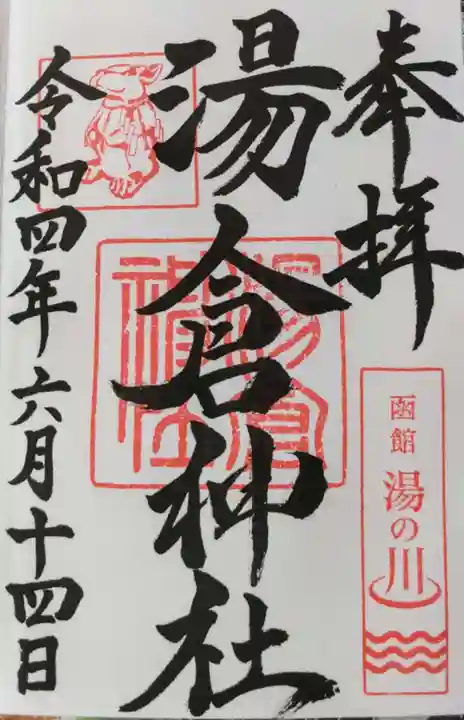 奉拝
函館 湯の川
湯倉神社
湯倉神社
令和四年六月十四日